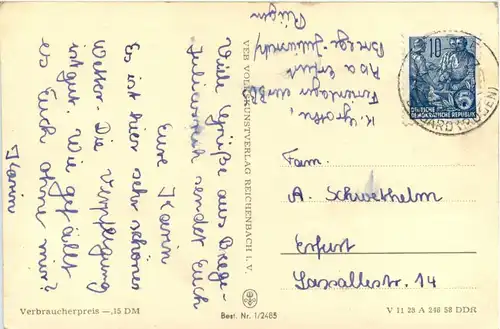 Viele Grüße aus Breege-
Juliusruh sendet Euch
Eure Karin
Es ist hier sehr schönes
Wetter. Die Verpflegung
ist gut. Wie gefällt
es Euch ohne mir?
Karin
K.
Ferienlager
Aba Erfurt
Breege-Juliusruh
Rügen
VEB VOLKSKUNSTVERLAG REICHENBACH I. V.
10
DEUTSCHE
DEMOKRATISCHE REPUBLIK
Fam.
A. Schwethelm
Erfurt
Lassallestr. 14
Verbraucherpreis —,15 DM
Best. Nr. 1/2485
V 11 28 A 248 58 DDR